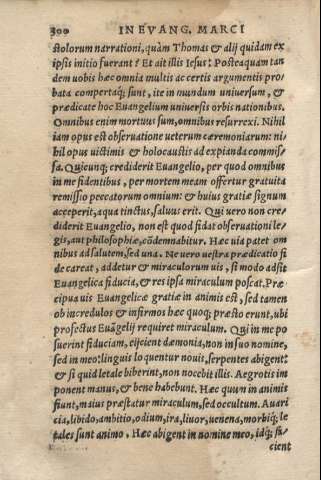 300 IN EVANG. MARCI
ſtolorum narrationi, quàm Thomas & alij quidam ex
ipſis initio fuerant? Et ait illis Ieſus: Poſteaquam tan
dem uobis hæc omnia multis ac certis argumentis pro-
bata compertaq́; ſunt, ite in mundum uniuerſum, &
prædicate hoc Euangelium uniuerſis orbis nationibus.
Omnibus enim mortuus ſum, omnibus reſurrexi. Nihil
iam opus eſt obſeruatione ueterum cæremoniarum: ni-
hil opus uictimis & holocauſtis ad expianda commiſ-
ſa. Quicunq; crediderit Euangelio, per quod omnibus
in me fidentibus, per mortem meam offertur gratuita
remiſſio peccatorum omnium: & huius gratiæ ſignum
acceperit, aqua tinctus, ſaluus erit. Qui uero non cre-
diderit Euangelio, non eſt quod fidat obſeruationi le-
gis, aut philoſophiæ, cõdemnabitur. Hæc uia patet om
nibus ad ſalutem, ſed una. Ne uero ueſtra prædicatio fi
de careat, addetur & miraculorum uis, ſi modo adſit
Euangelica fiducia, & res ipſa miraculum poſcat. Præ
cipua uis Euangelicæ gratiæ in animis eſt, ſed tamen
ob incredulos & infirmos hæc quoq; præſto erunt, ubi
profectus Euãgelij requiret miraculum. Qui in me po
ſuerint fiduciam, eijcient dæmonia, non in ſuo nomine,
ſed in meo: linguis loquentur nouis, ſerpentes abigent:
& ſi quid letale biberint, non nocebit illis. Aegrotis im
ponent manus, & bene habebunt. Hæc quum in animis
fiunt, maius præſtatur miraculum, ſed occultum. Auari
cia, libido, ambitio, odium, ira, liuor, uenena, morbiq́; le
tales ſunt animo. Hæc abigent in nomine meo, idq́; fa-
cient